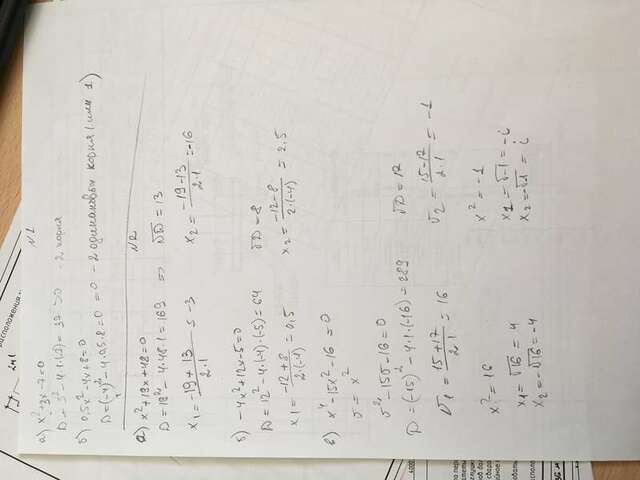 N1
а) x²-3x-7=0
D = 3²-4·1·(-7) = 37 >0 - 2 корня
б) 0,5x²-4x+8=0
D=(-4)²-4·0,5·8=0 = 0 - 2 одинаковых корня (или 1)
N2
а) x²+19x+48=0
D=19²-4·48·1=169 => √D=13
x₁=(-19+13)/(2·1)=-3 x₂=(-19-13)/(2·1)=-16
б) -4x²+12x-5=0
D=12²-4·(-4)·(-5)=64 √D=8
x₁=(-12+8)/(2·(-4))=0,5 x₂=(-12-8)/(2·(-4))=2,5
в) x⁴-15x²-16=0
v=x²
v²-15v-16=0
D=(-15)²-4·1·(-16)=289 √D=17
v₁=(15+17)/(2·1)=16 v₂=(15-17)/(2·1)=-1
x²=16 x²=-1
x₁=√16=4 x₁=√-1=-i
x₂=-√16=-4 x₂=√-1=i